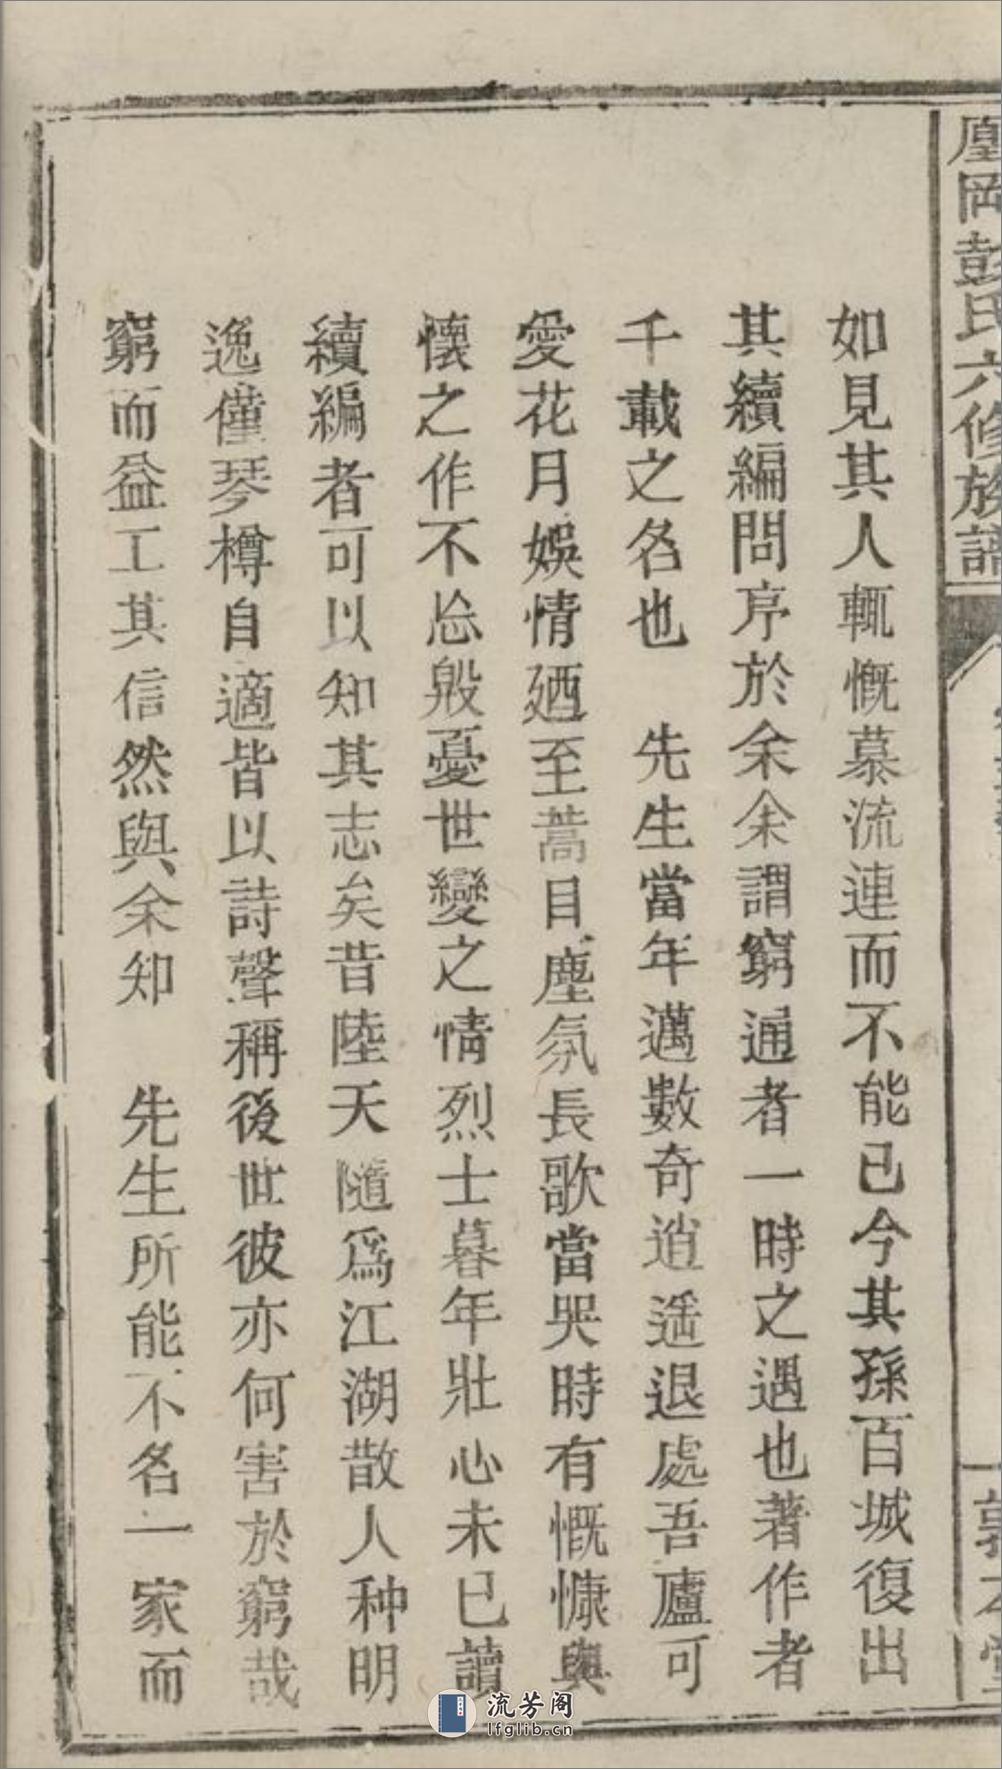 岡彭氏六修族譜
如見其人輒慨慕流連而不能已今其孫百城復出
其續編問序於余余謂窮通者一時之遇也著作者
千載之名也　先生當年邁數奇逍遙退處吾廬可
愛花月娛情廼至蒿目塵氛長歌當哭時有慨慷與
懷之作不忩毀憂世變之情烈士暮年壯心未已讀
續編者可以知其志矣昔陸天隨爲江湖散人种明
逸僅琴樽自適皆以詩聲稱後世彼亦何害於窮哉
窮而益工其信然與余知　先生所能不名一家而
流芳阁
lfglib.cn